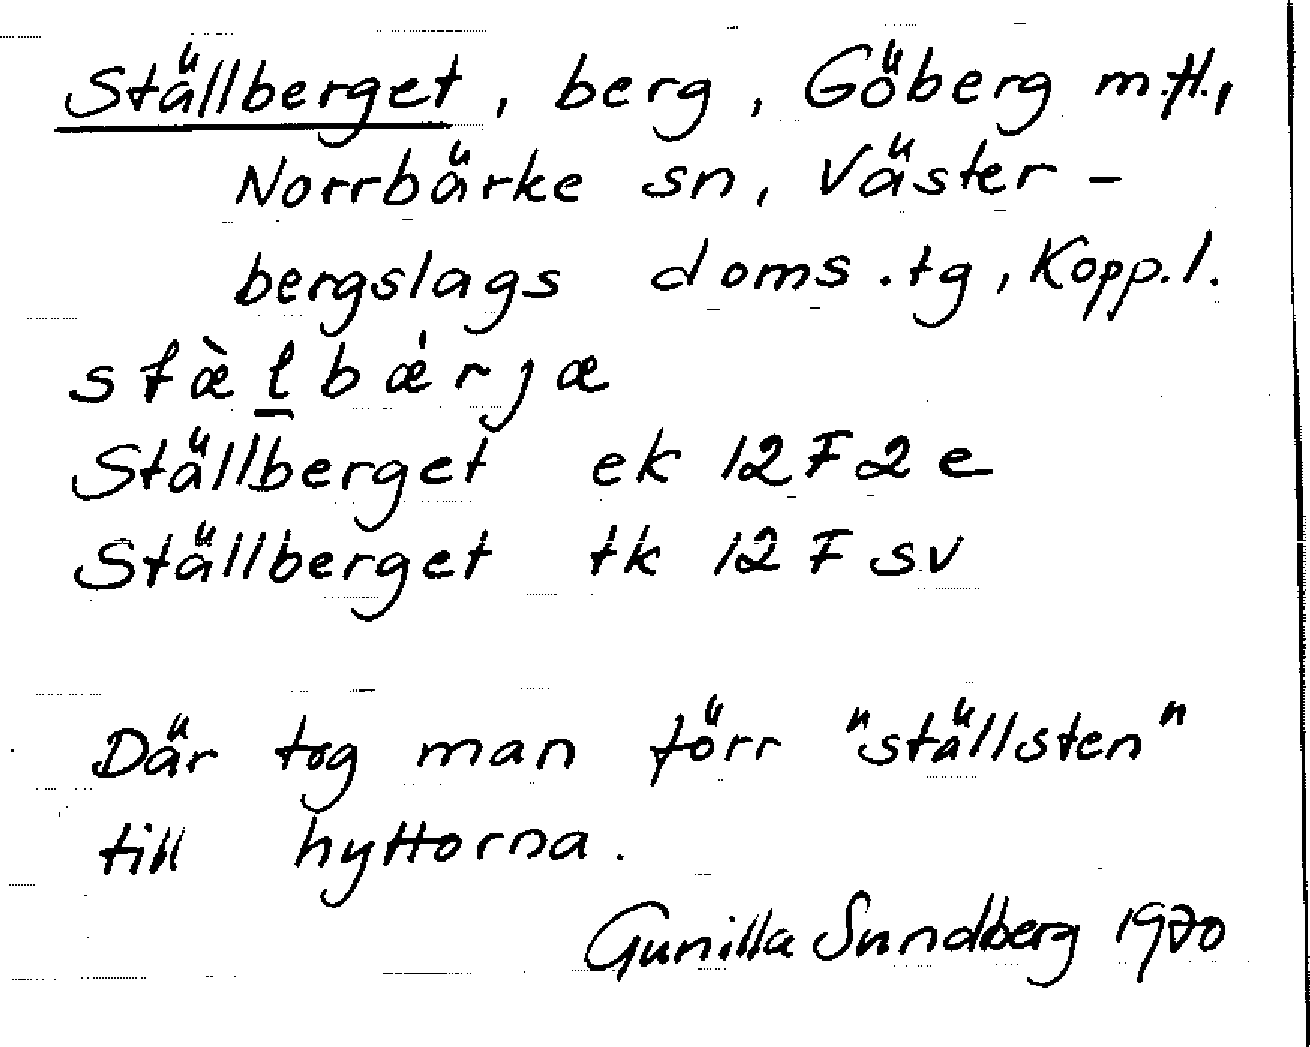 Ställberget, berg, Göberg m.fl.,
Norrbärke sn, Väster-
bergslags doms.tg, Kopp.l.
stæ̀l̲bæ̇rȷæ
Ställberget ek 12F2e
Ställberget tk 12F sv
Där tog man förr "ställsten"
till hyttorna.
Gunilla Sundberg 1970